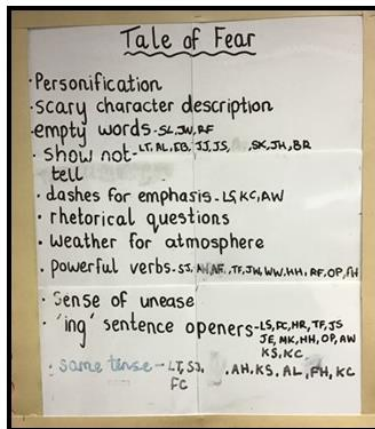 Tale of Fear
·Personification
·scary character description
·empty words-SL,JW,RF
·Show not-LT,AL,EB,JJ,JS, SK,JH,BR
tell
·dashes for emphasis-LS,KC,AW
·rhetorical questions
·Weather for atmosphere
·powerful verbs-SJ, TF,JW,WW,HH,RF,OP,FH
·Sense of unease
·'ing' sentence openers-LS,FC,HR,TF,JS
JE,MK,HH,OP,AW
KS,KC
·same tense-LT,SJ, .AH,KS,AL,FH,KC
FC